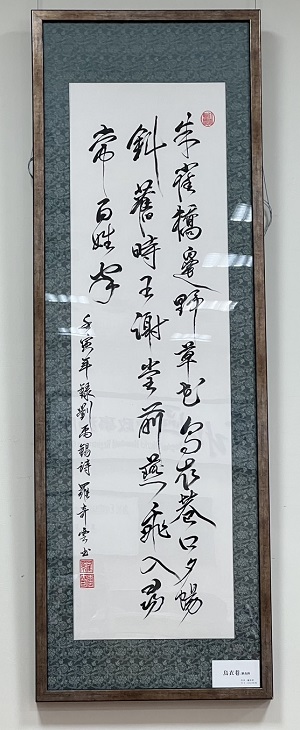 朱雀橋邊野草花烏衣巷口夕陽
斜舊時王謝堂前燕飛入尋
常百姓家
壬寅年錄劉禹錫詩 羅奇雲书
烏衣巷